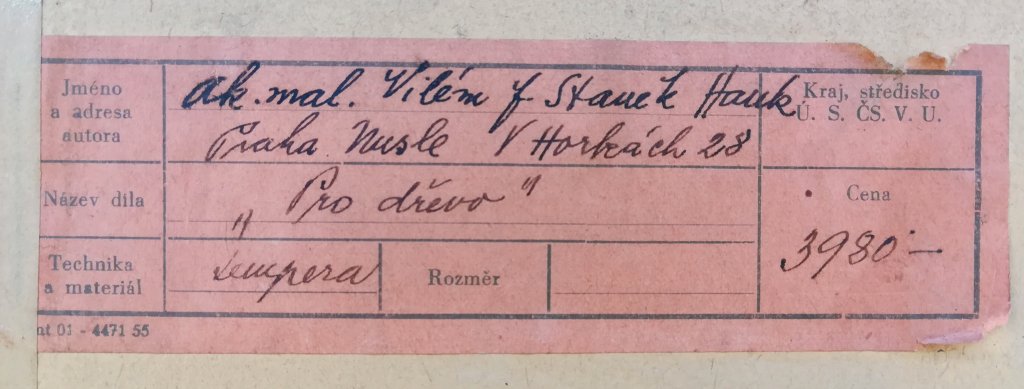 Jméno
a adresa
autora
ak. mal. Vilém f Stanek Hauk
Praha Nusle V Horkách 28
Kraj, středisko
Ú. S. ČS. V. U.
Název díla
„Pro dřevo"
Cena
3980·—
Technika
a materiál
tempera
Rozměr
nt 01 - 4471 55